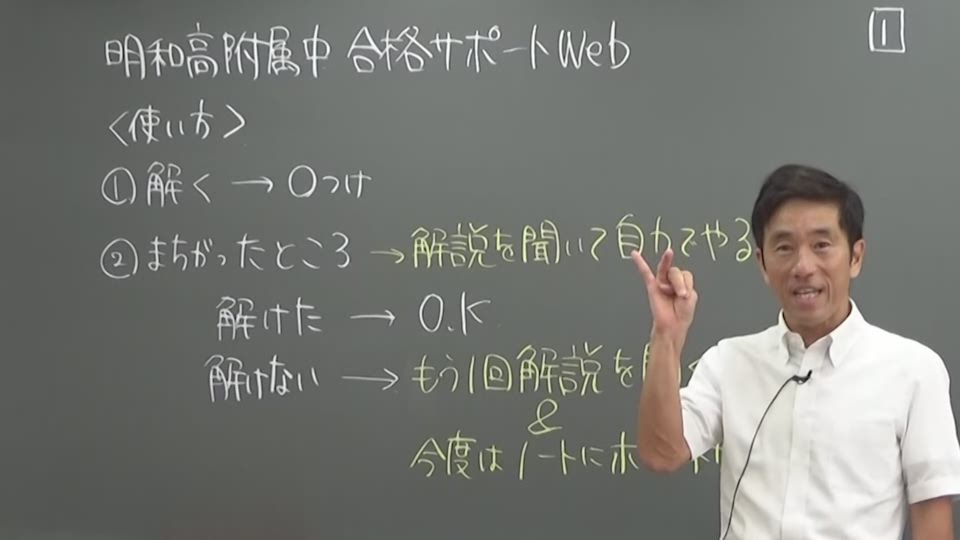 1
明和高附属中 合格サポートWeb
〈使い方〉
①解く→〇つけ
②まちがったところ→解説を聞いて自力でやる
解けた→O.K
解けない→もう1回解説を
&
今度はノートに